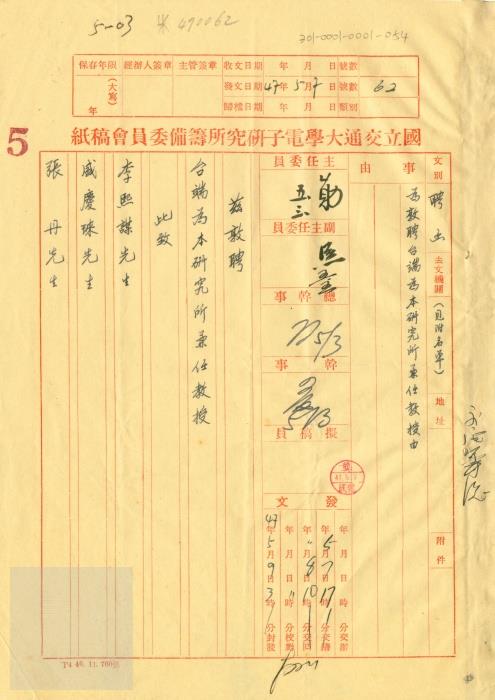 5-03
米 490062
301-0001-0001-054
保存年限 經辦人簽章 主管簽章 收文日期 年 月 日 號數
(大寫) 發文日期 47年 5月 7日 號數 62
年 歸檔日期 年 月 日 類別
5
國立交通大學電子研究所籌備委員會稿紙
文別 聘函 去文機關 (見附名單) 地址 附件
事由 為敦聘台端為本研究所兼任教授由
主任委員
五三
副主任委員
熙
總幹事
5/3
幹事
5/3
擬稿員
發文
5月7日17時 分交辦
年"月8日10時 分交繕
年 月 日 時 分交回
年 月 日"時 分校對
47年5月9日3時 分封發
茲敦聘
台端為本研究所兼任教授
此致
李熙謀先生
盛慶琜先生
張 丹先生
T4 46. 11. 700張